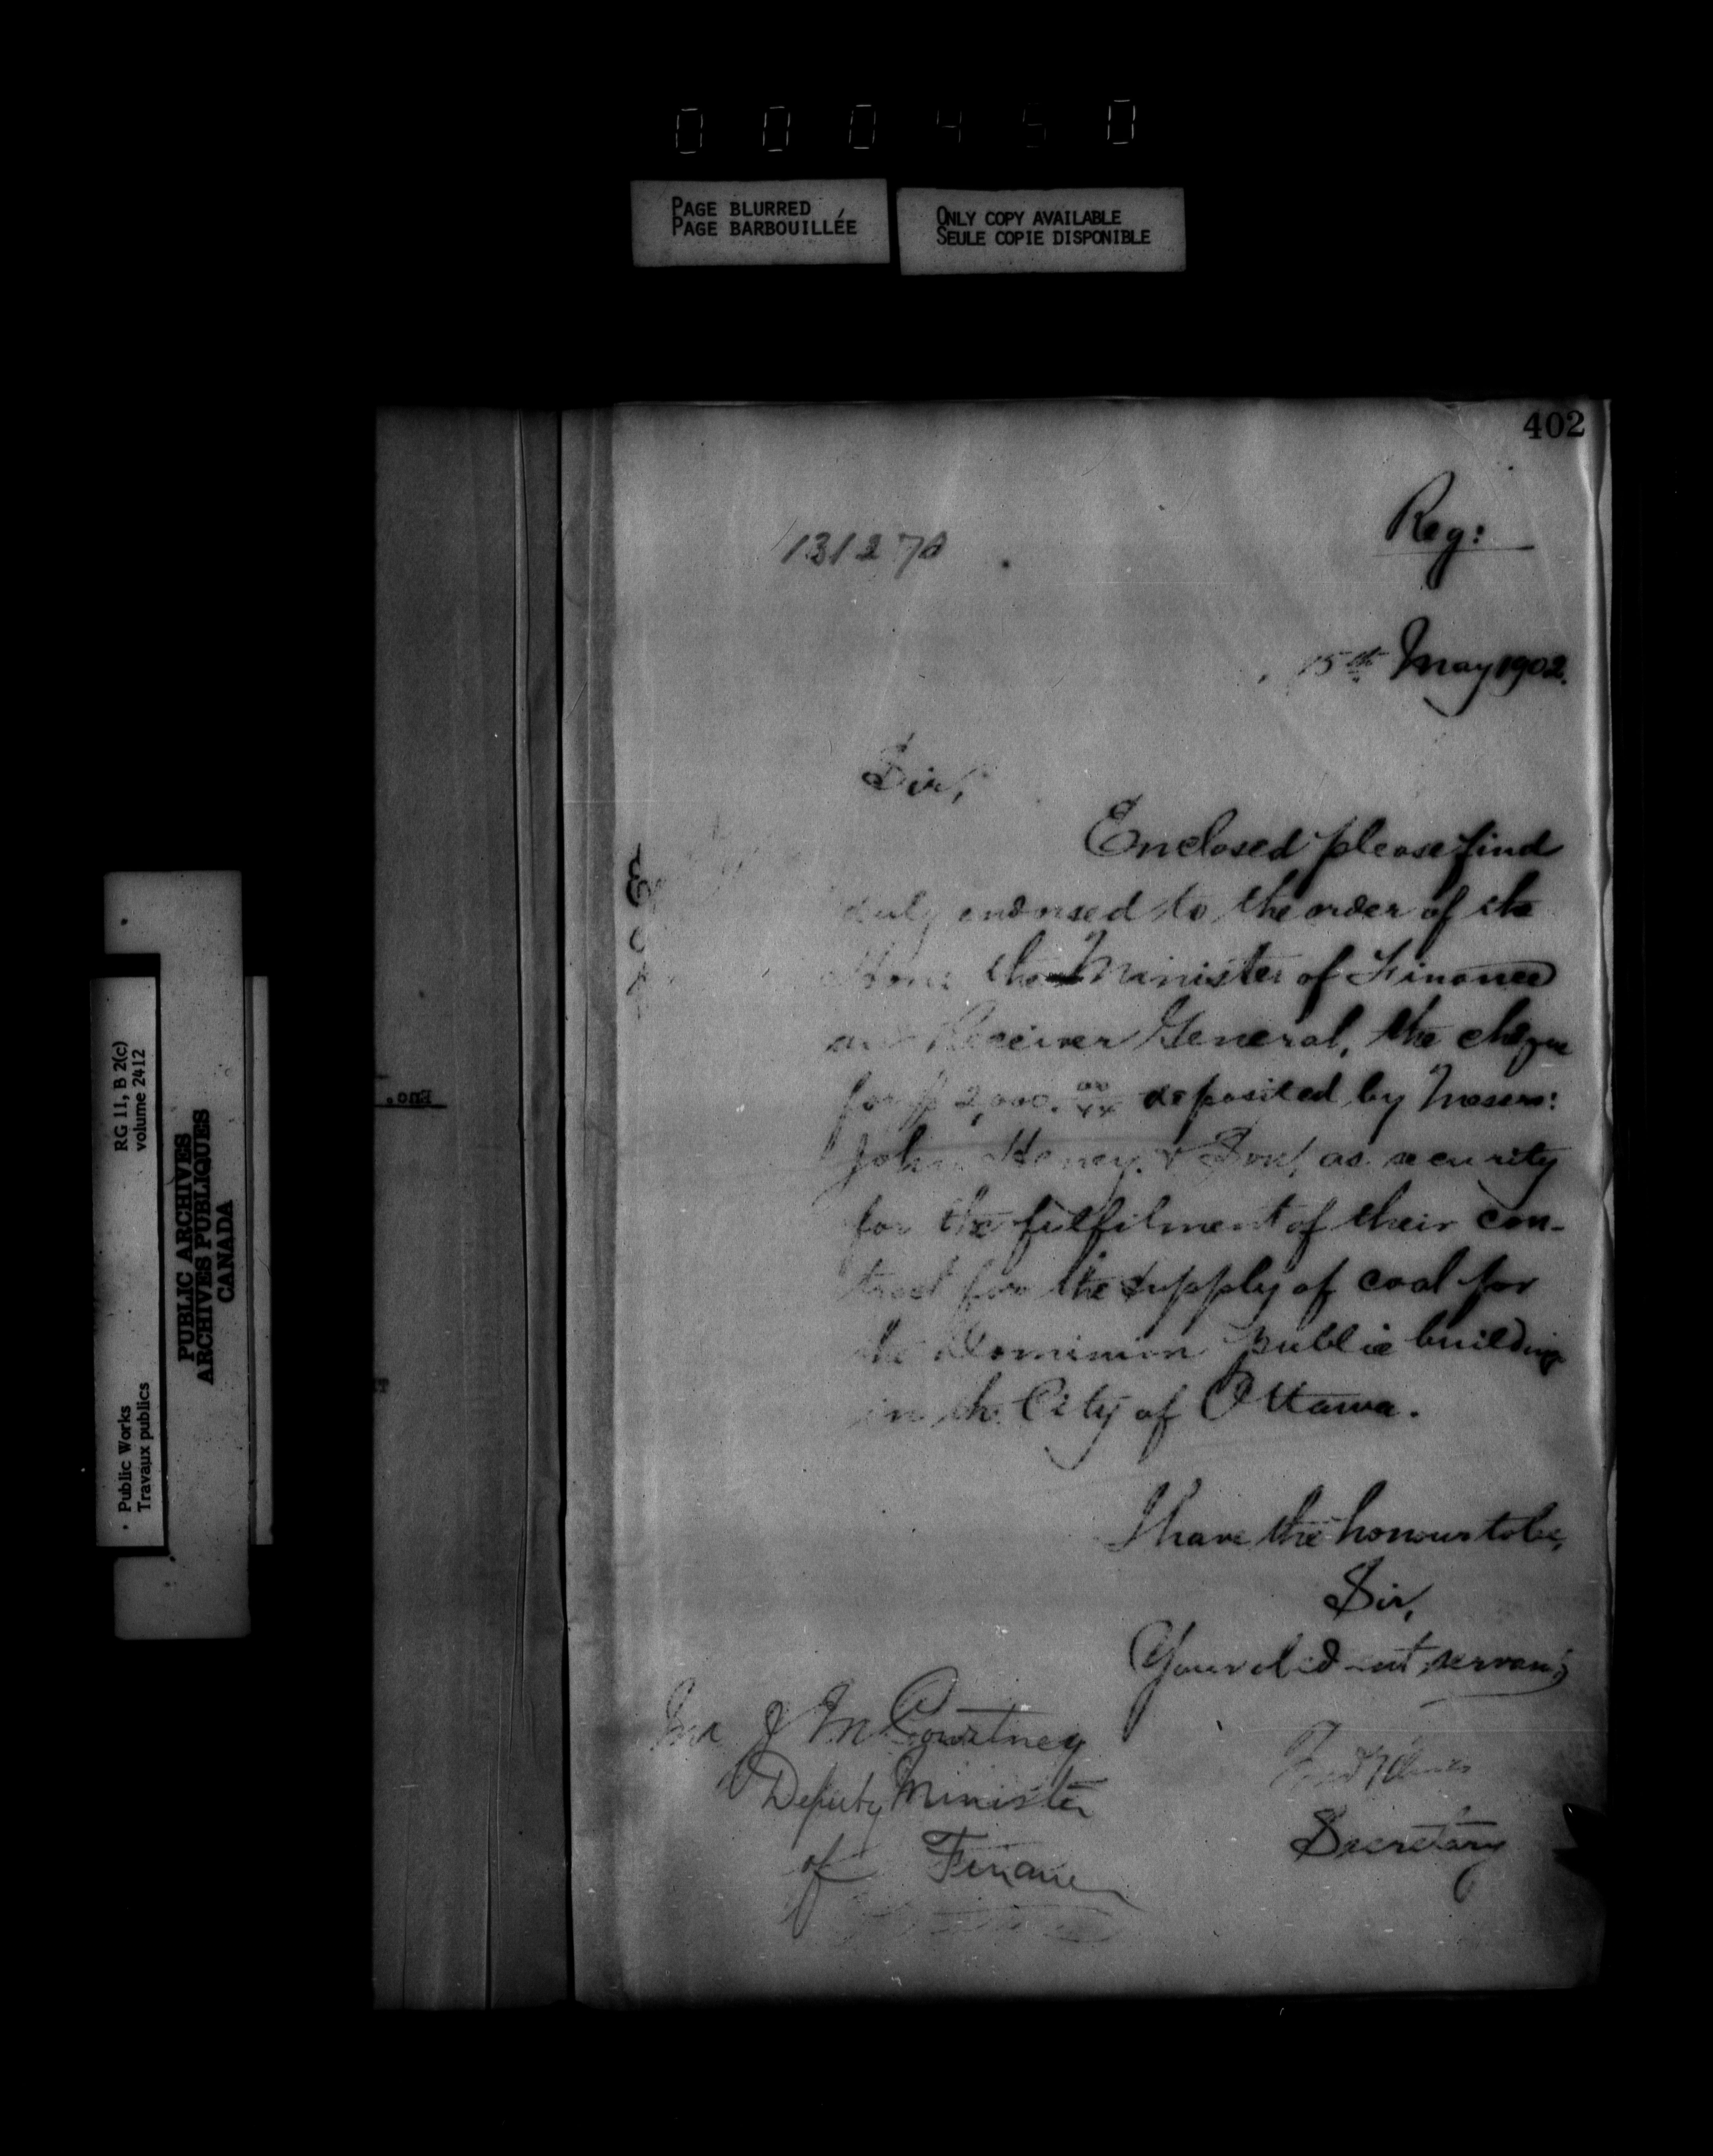 000450
PAGE BLURRED
PAGE BARBOUILLÉE
ONLY COPY AVAILABLE
SEULE COPIE DISPONIBLE
402
Reg:
131270
15th May 1902.
Sir,
Enclosed please find
duly endorsed to the order of the
Hon: the Minister of Finance
and Receiver General, the cheque
for $2,000. 00/xx deposited by Messrs:
John Heney & Son, as security
for the fulfilment of their con-
tract for the supply of coal for
the Dominion Public building
in the City of Ottawa.
I have the honour to be,
Sir,
Your obedient servant,
Secretary
Mr J M Courtney
Deputy Minister
of Finance
Enc.
RG 11, B 2(c)
volume 2412
Public Works
Travaux publics
PUBLIC ARCHIVES
ARCHIVES PUBLIQUES
CANADA